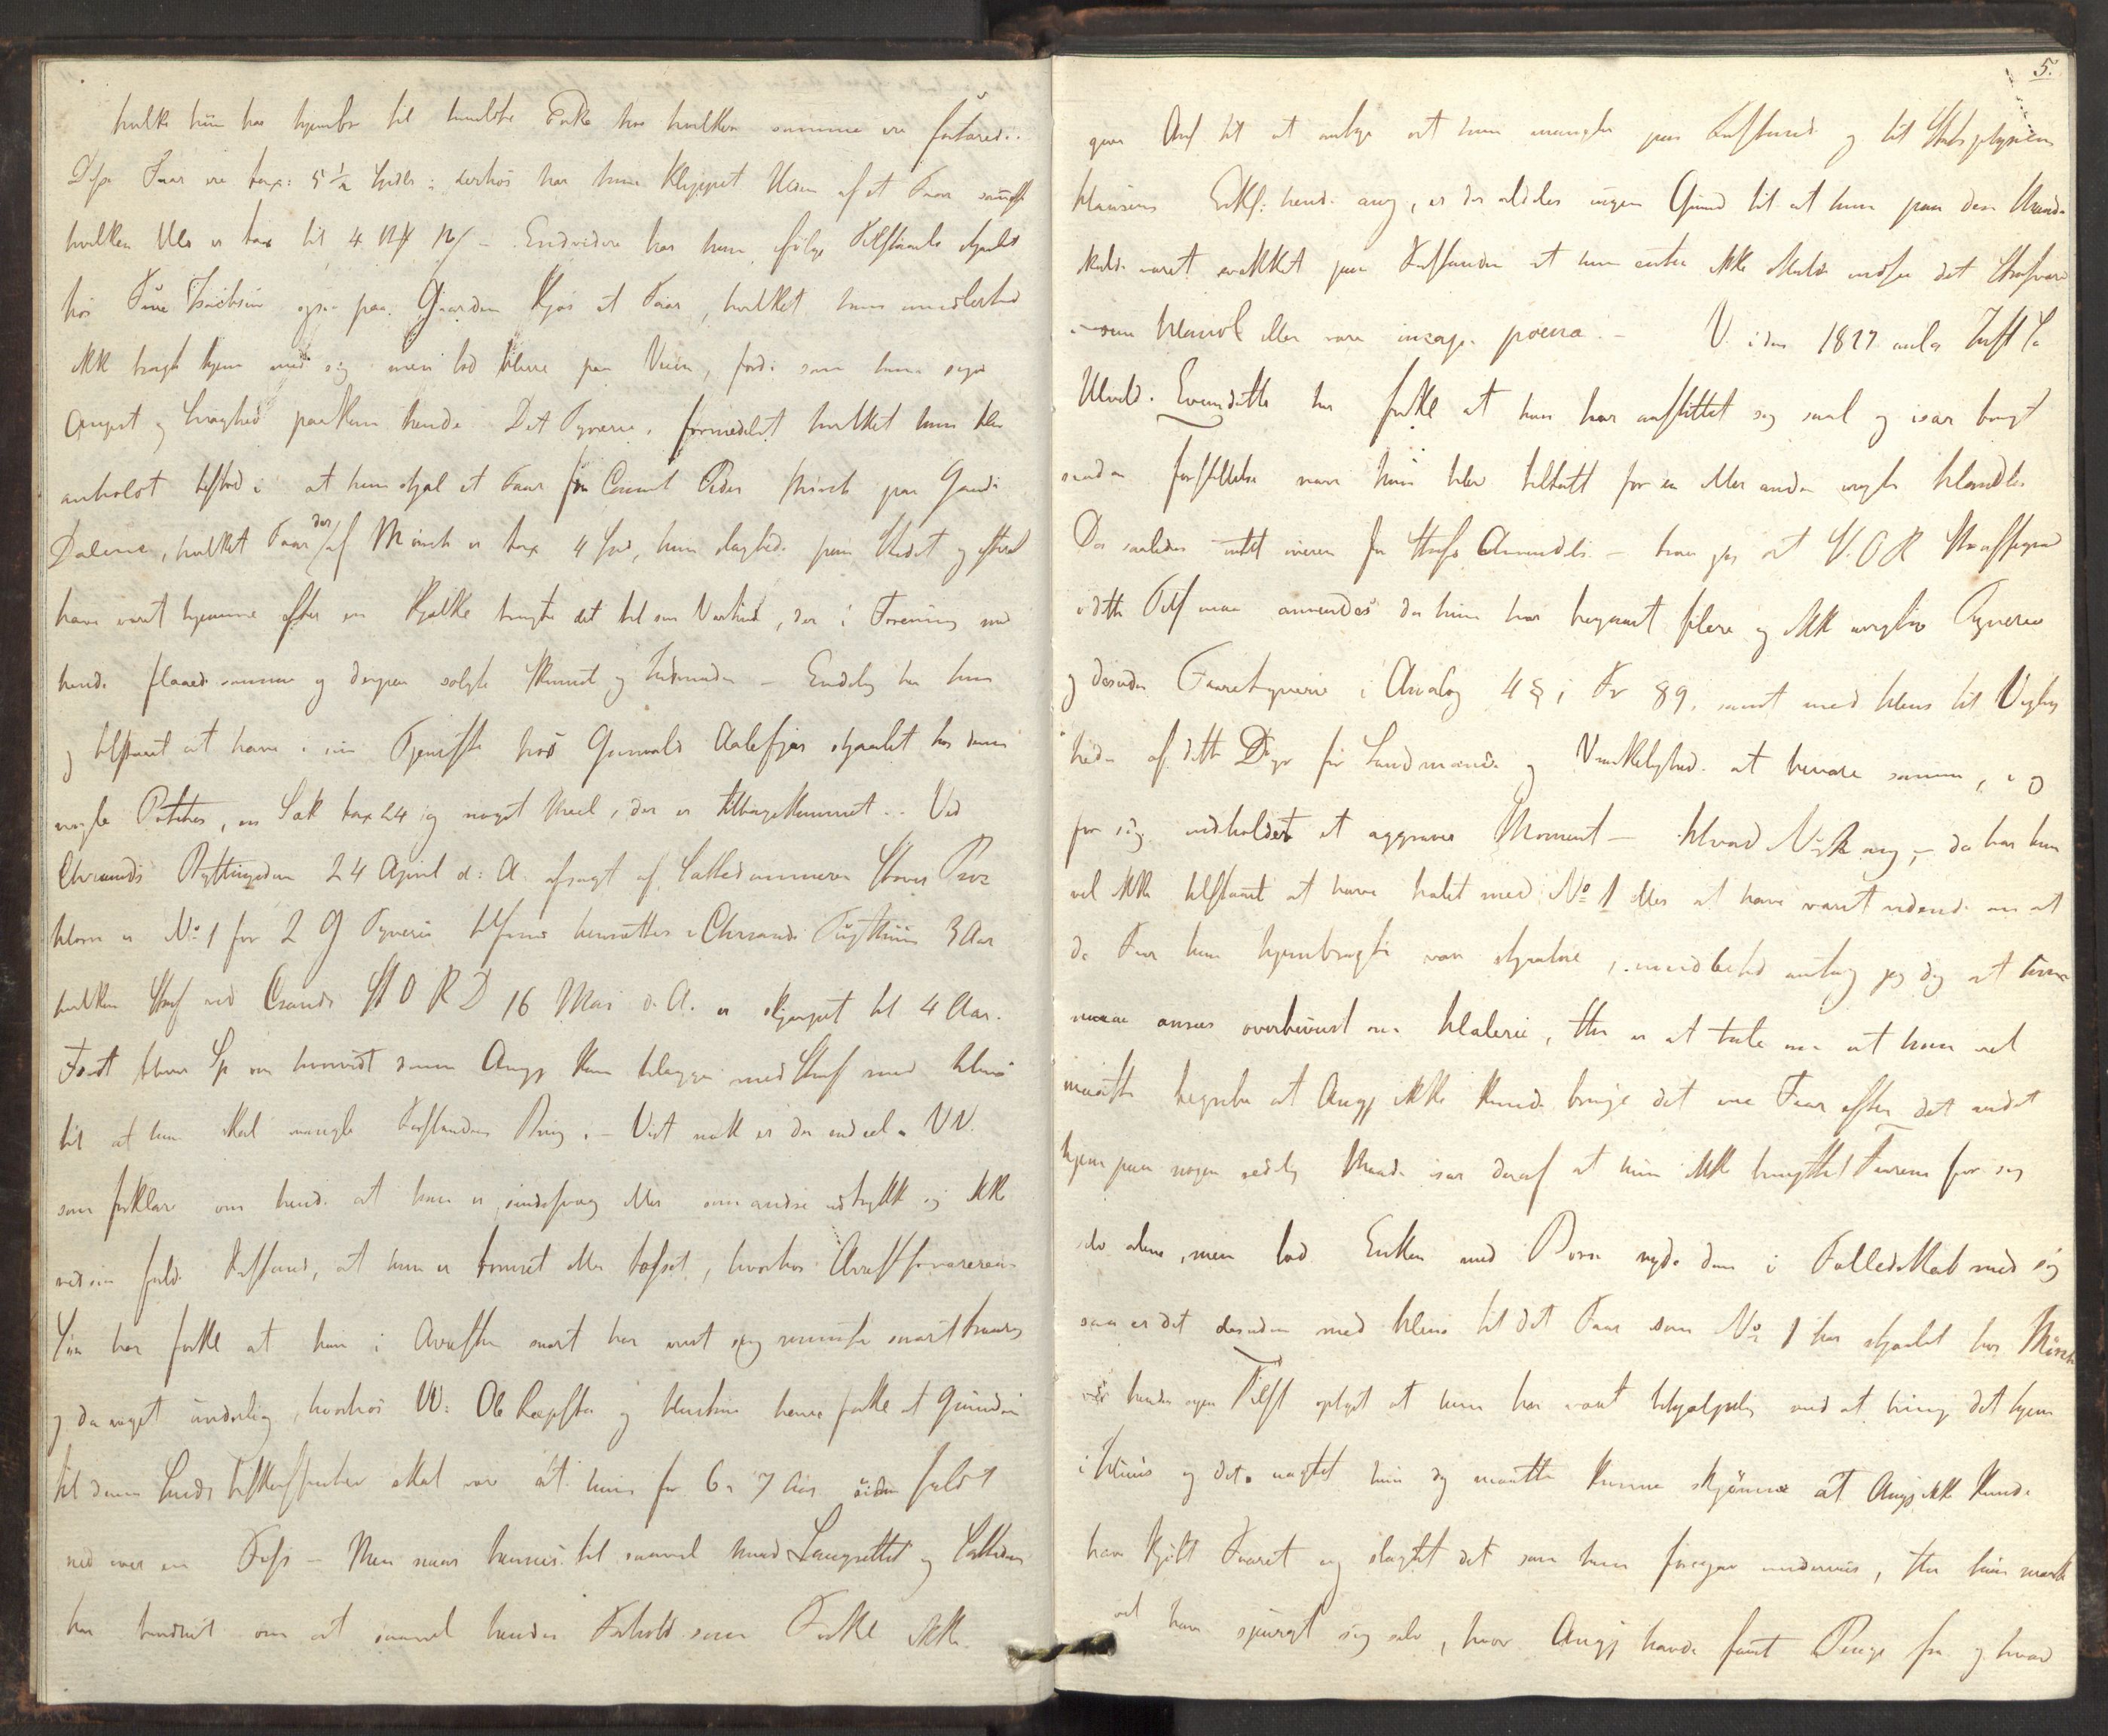 hvilke hun har hjembr til Enke hos hvilken samme ere fortærede.
Disse Faar ere tax: 5½ Spdlr: derhos har hun klippet Ulden af et Faar
hvilken Uld er tax til 4 - Endvidere har hun ifølge Tilstaaelse stjaalet
hos ogsaa paa Gaarden Kjos et Faar, hvilket hun imidlertid
ikke bragte hjem med sig men lod blive paa Veien, fordi som hun siger
Angest og Svaghed paakom hende. Det Tyverie, formedelst hvilket hun blev
anholdt bestod i at hun stjal et Faar fra Peder Mörch paa Gaarde
Dalene, hvilket Faar der af Mörch er tax 4 Spd, hun slagtede paa Stedet og efter at
have været hjemme efter en Kjælke bragte det til sin Vertinde, der i Forening med
hende flaaede samme og derpaa solgte Skindet og Indmaden - Endelig har hun
og tilstaaet at have i sin Tjeneste hos Gunvald Aalefjær stjaalet fra denne
nogle Poteter, en Sæk tax 24 og noget Meel, der er tilbagekommet. Ved
Chrsands Byttingsdom 24 April d: A. afsagt af
er No 1 for 2 G Tyverie hensættes i Chrsands Tugthuus 3 Aar
hvilken Straf ved Crsands St O R D 16 Mai d. A. er skjærpet til 4 Aar.
Först bliver Sp om hvorvidt denne Angj kan belægges med Straf med Hens
til at hun skal mangle Forstandens Brug. - Vist nok er der endeel VV.
som forklare om hende at hun er sindssvag eller som andre udtrykke sig ikke
ved sin fulde Forstand, at hun er eller tosset, hvorhos Arrestforvareren
har forkl at hun i Arresten snart har viist sig snart
og da noget underlig, hvorhos VV: Ole og Hustrue have forkl at Grunden
til denne Sinds Beskaffenhed skal være at hun for 6 a 7 Aar siden faldt
ned over en Fos - Men naar hensees til saavel hvad Laugrettet og
har om at saavel hendes Forhold som Forkl ikke
5.
give Anl til at antage at hun mangler sin Forstand og til Stadsphysicus
Erkl: hende ang, er der aldeles ingen Grund til at hun paa den Maade
skulde været svækket paa Forstanden at hun enten ikke skulde indsee det Strafvær
i sin Handl eller være incapax poena. - V. i den 1827
. Eivindsdtt har forkl at hun har anstillet sig saal og især brugt
saadan forstillelse naar hun blev tiltalt for en eller anden Handling
Der saaledes intet er for Strafs Anvendelse - troer jeg at St. O R Straffegrad
i dette Tilf maa anvendes da hun har begaaet flere og ikke Tyverier
og desuden Faaretyverie i Analog 4 § i Fr 89. samt med Hens til Vigtig
heden af dette Dyr for Landmanden og Vanskelighed at bevare samme, i og
for sig indeholder et aggraver Moment - Hvad No 2 ang, - da har hun
vel ikke tilstaaet at have holdt med No 1 eller at have været vidende om at
de Faar hun hjembragte vare stjaalne, imidlertid antag jeg dog at hun
maae ansees overbeviist om Hælerie, thi er at tale om at hun vel
maatte begribe at Angj ikke kunde bringe det ene Faar efter det andet
hjem paa nogen redelig Maade især deraf at hun ikke benyttet Faarene for sig
selv alene, men lod Enken med Börn nyde dem i Fælledskab med sig
saa er det desuden med Hens til det Faar som No 1 har stjaalet hos Mörch
ved hendes egen Tilst oplyst at hun har været behjælpelig med at bringe det hjem
i Huus og det uagtet hun dog maatte kunne skjönne at Angj ikke kunde
have kjöbt Faaret og slagtet det som hun foregav undervæis, thi hun maatte
vel have spurgt sig selv, hvor Angj havde faaet Penge fra og hvad